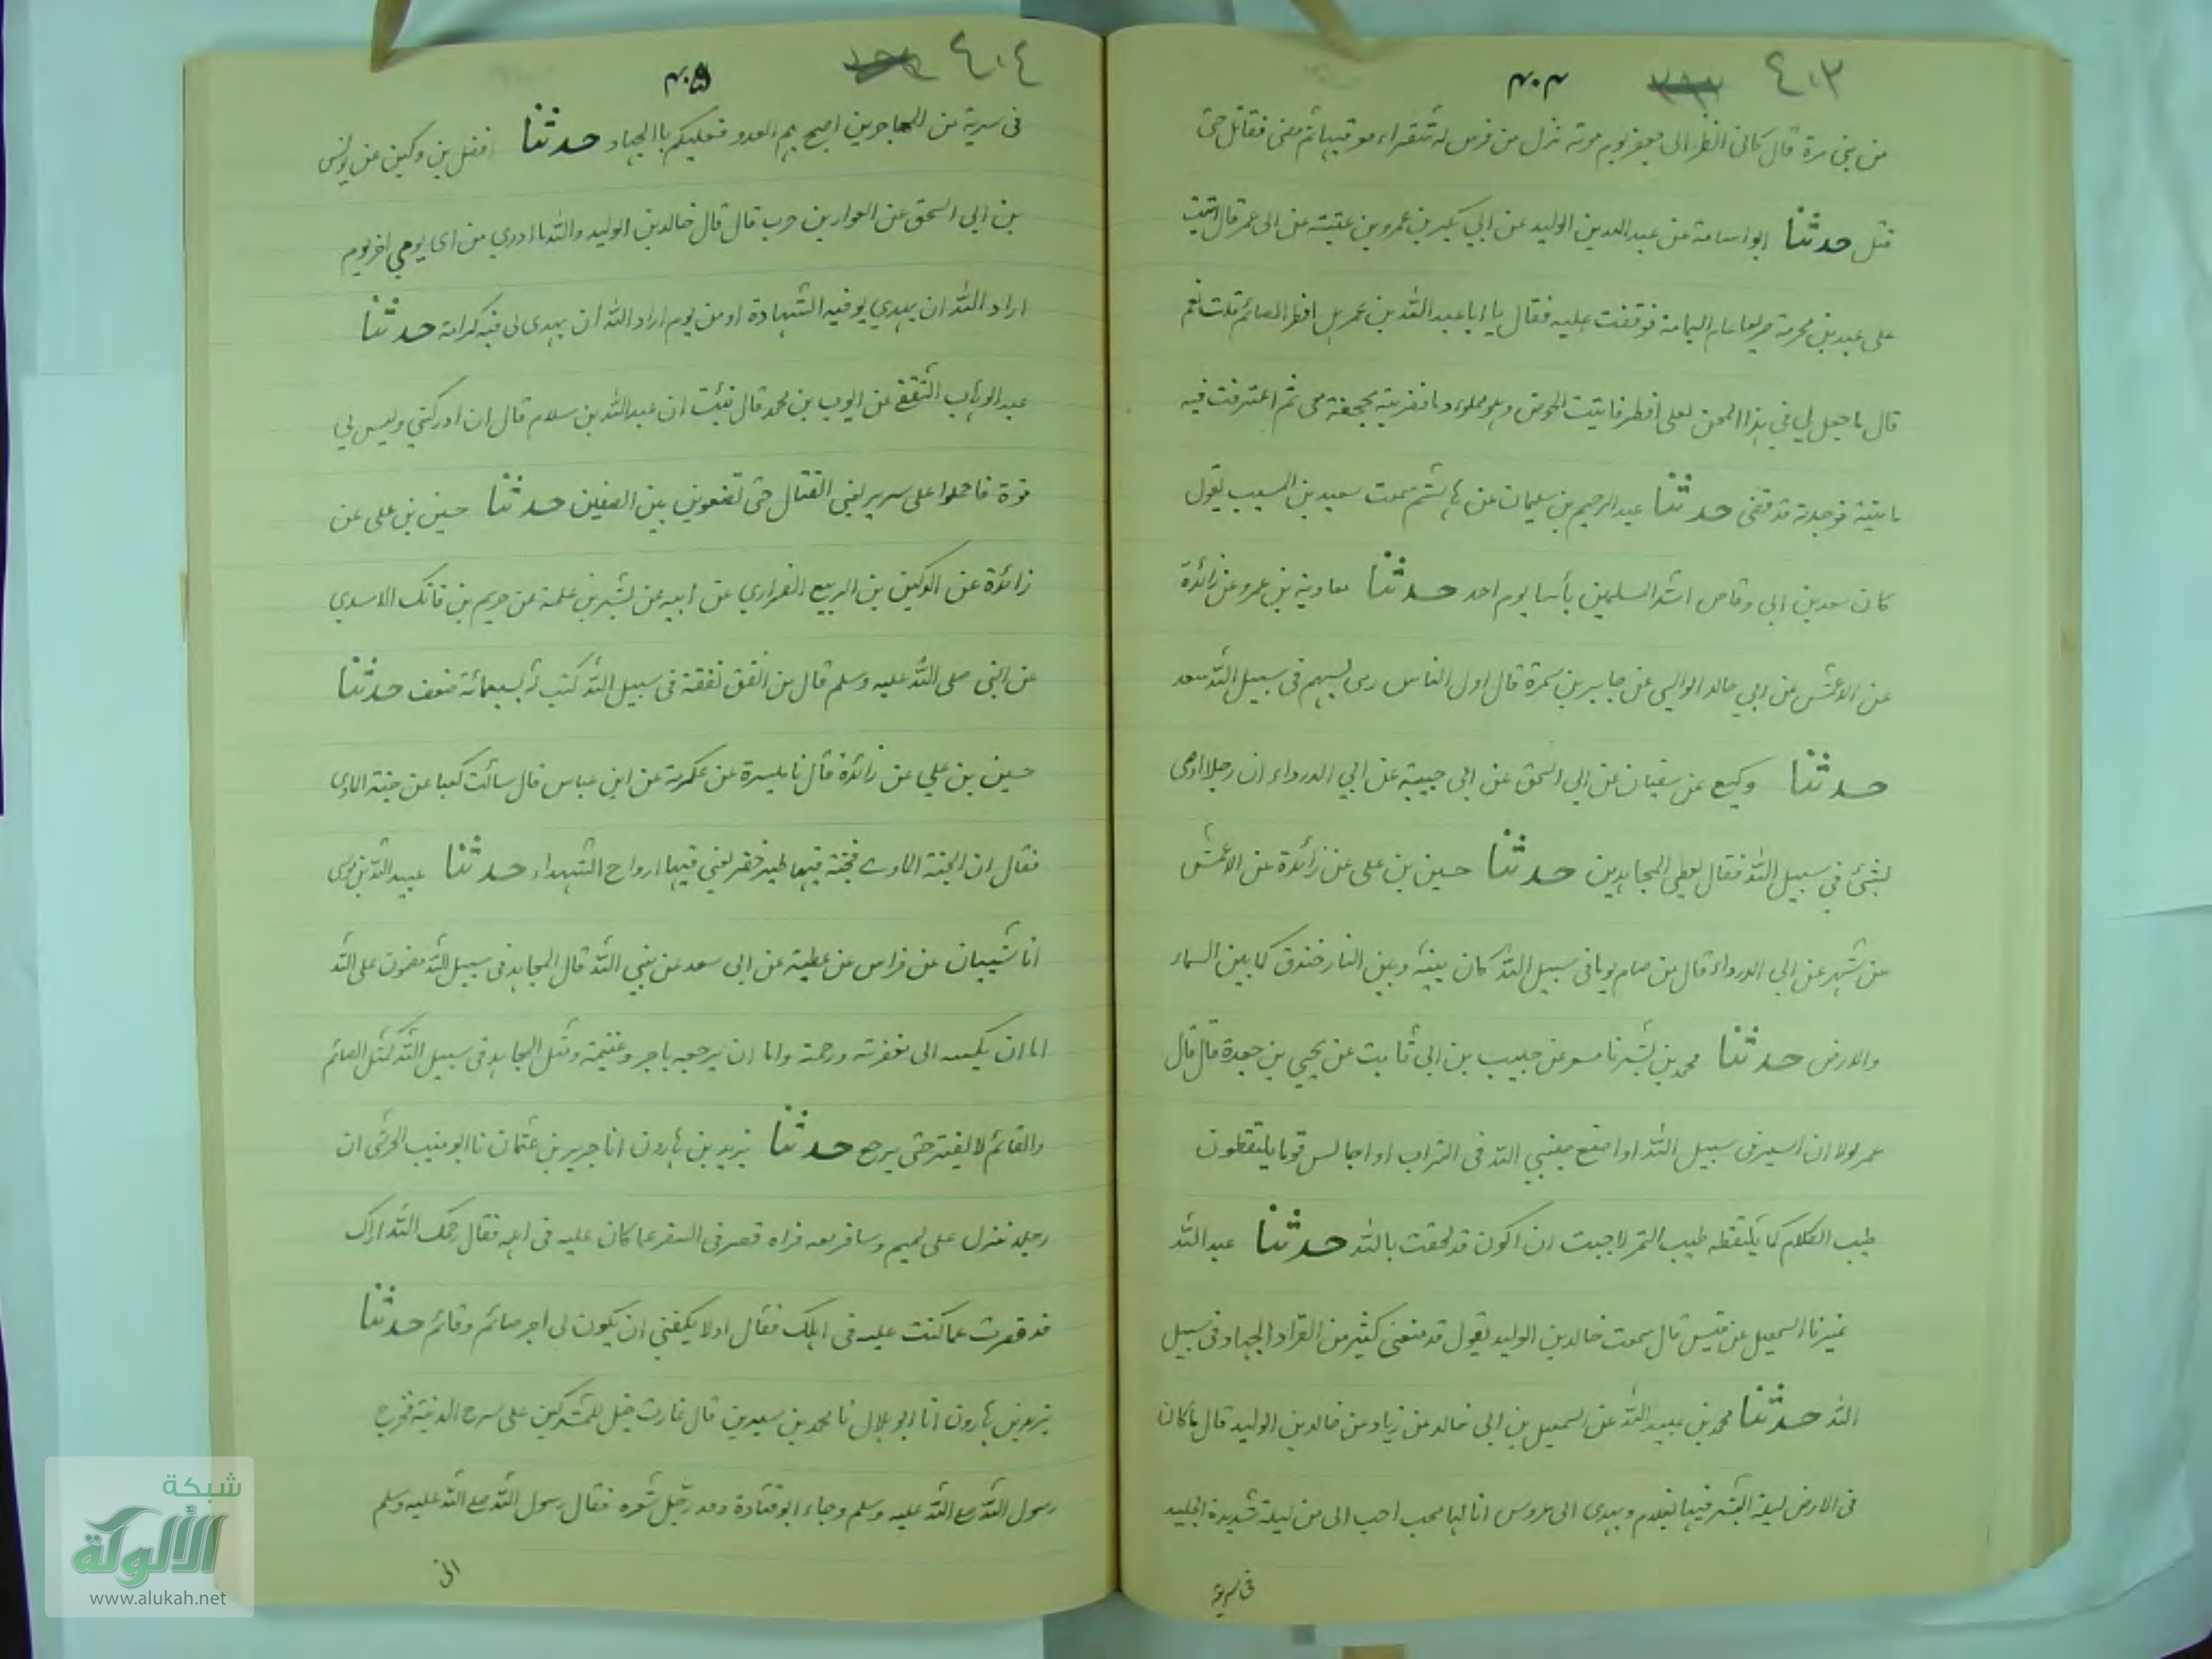 ٤٠٣
٤٠٤
من بني مرة قال كاني انظر الى جعفر يوم موته نزل من فرس له شقراء فعرقبها ثم مضى فقاتل حتى
قتل حدثنا ابو اسامة عن عبد الله بن الوليد عن ابي بكير بن عمرو بن عقبة عن ابن عمر قال اتيت
على عبد بن مخرمة صريعا عام اليمامة فوقفت عليه فقال يا ابا عبد الله بن عمر هل افطر الصائم قلت نعم
قال فاجعل لي في هذا المجن لعلي افطر فاتيت الحوض وهو مملوء دما فضربته بحجفة معي ثم اغترفت فيه
فاتيته فوجدته قد قضى حدثنا عبد الرحيم بن سليمان عن هاشم سمعت سعيد بن المسيب يقول
كان سعد بن ابي وقاص اشد المسلمين بأسا يوم احد حدثنا معاوية بن عمرو عن زائدة
عن الاعمش عن ابي خالد الوالبي عن جابر بن سمرة قال اول الناس رمى بسهم في سبيل الله سعد
حدثنا وكيع عن سفيان عن ابي اسحق عن ابي حبيبة عن ابي الدرداء ان رجلا اوصى
بشئ في سبيل الله فقال يعطى المجاهدين حدثنا حسين بن علي عن زائدة عن الاعمش
عن شهر عن ابي الدرداء قال من صام يوما في سبيل الله كان بينه وبين النار خندق كما بين السماء
والارض حدثنا محمد بن بشر نا مسعر عن حبيب بن ابي ثابت عن يحيى بن جعدة قال قال
عمر لولا ان اسير في سبيل الله او اضع جبيني لله في التراب او اجالس قوما يلتقطون
طيب الكلام كما يلتقط طيب التمر لاحببت ان اكون قد لحقت بالله حدثنا عبد الله
نمير نا اسمعيل عن قيس قال سمعت خالد بن الوليد يقول قد منعني كثير من القراءة الجهاد في سبيل
الله حدثنا محمد بن عبيد الله عن اسمعيل بن ابي خالد عن زياد عن خالد بن الوليد قال ما كان
في الارض ليلة ابشر فيها بغلام ويهدى الى عروس انا لها محب احب الى من ليلة شديدة الجليد
في سرية
٤٠٤
٤٠٥
في سرية من المهاجرين اصبح بهم العدو فعليكم بالجهاد حدثنا الفضل بن وكين عن يونس
بن ابي اسحق عن العوار بن حرب قال قال خالد بن الوليد والله ما ادري من اى يومي افر يوم
اراد الله ان يهدي لي فيه الشهادة او من يوم اراد الله ان يهدى لى فيه كرامة حدثنا
عبد الوهاب الثقفي عن ايوب بن محمد قال نبئت ان عبد الله بن سلام قال ان ادركتني وليس لي
قوة فاحملوا على سرير يعني القتال حتى تضعوني بين الصفين حدثنا حسين بن على عن
زائدة عن الركين بن الربيع الفزاري عن ابيه عن بشير بن علمة عن خريم بن فاتك الاسدي
عن النبي صلى الله عليه وسلم قال من انفق نفقة في سبيل الله كتب له بسبعمائة ضعف حدثنا
حسين بن علي عن زائدة قال نا ميسرة عن عكرمة عن ابن عباس قال سألت كعبا عن جنة الماوى
فقال ان الجنة الماوى فجنة فيها طير خضر يعني فيها ارواح الشهداء حدثنا عبيد الله بن موسى
انا شيبان عن فراس عن عطية عن ابى سعد عن نبي الله قال المجاهد في سبيل الله مضمون على الله
اما ان يكتبه الى مغفرته ورحمته واما ان يرجعه باجر وغنيمة ومثل المجاهد في سبيل الله كمثل الصائم
والقائم لا يفتر حتى يرجع حدثنا يزيد بن هارون انا جرير بن عثمان نا ابو منيب الجرشي ان
رجلا نزل على تميم وسافر معه فراه قصر في السفر عما كان عليه في اهله فقال رحمك الله اراك
قد قصرت عما كنت عليه في اهلك فقال اولا يكفيني ان يكون لى اجر صائم وقائم حدثنا
يزيد بن هارون انا ابو هلال نا محمد بن سيرين قال غارت خيل للمشركين على سرح المدينة فخرج
رسول الله صلى الله عليه وسلم وجاء ابو قتادة وقد رجل شعره فقال رسول الله صلى الله عليه وسلم
انى
شبكة
الألوكة
www.alukah.net